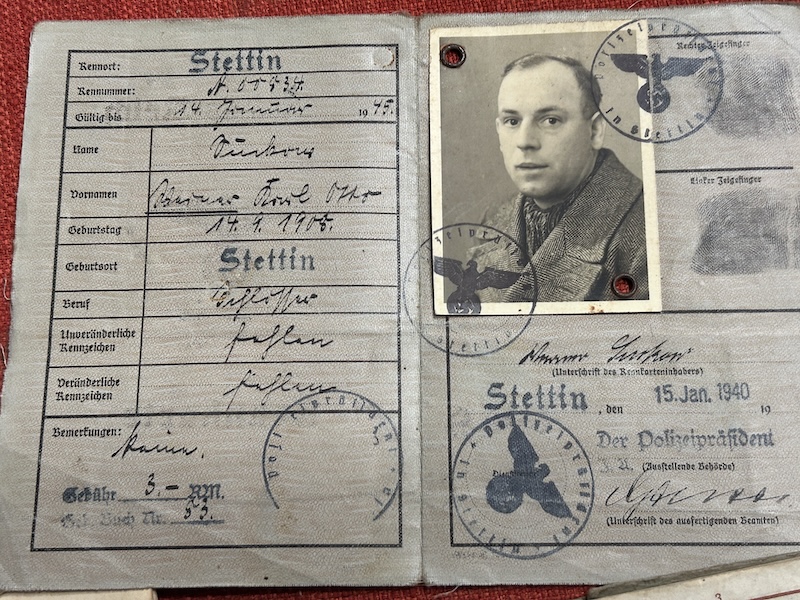 Kennort: Stettin
Kennummer: A. 00534
Gültig bis 14. Januar 1945.
Name Suckow
Vornamen Werner Karl Otto
Geburtstag 14. 9. 1908.
Geburtsort Stettin
Beruf Schlosser
Unveränderliche
Kennzeichen fehlen
Veränderliche
Kennzeichen fehlen
Bemerkungen:
Keine.
Gebühr 3.- RM.
Geb. Buch Nr. 53.
Polizeipräsident
Rechter Zeigefinger
Polizeipräsident in Stettin
Linker Zeigefinger
Polizeipräsident
Stettin
Werner Suckow
(Unterschrift des Kennkarteninhabers)
Stettin, den 15. Jan. 1940 19
Der Polizeipräsident
(Ausstellende Behörde)
(Unterschrift des ausfertigenden Beamten)
Polizeipräsident
3